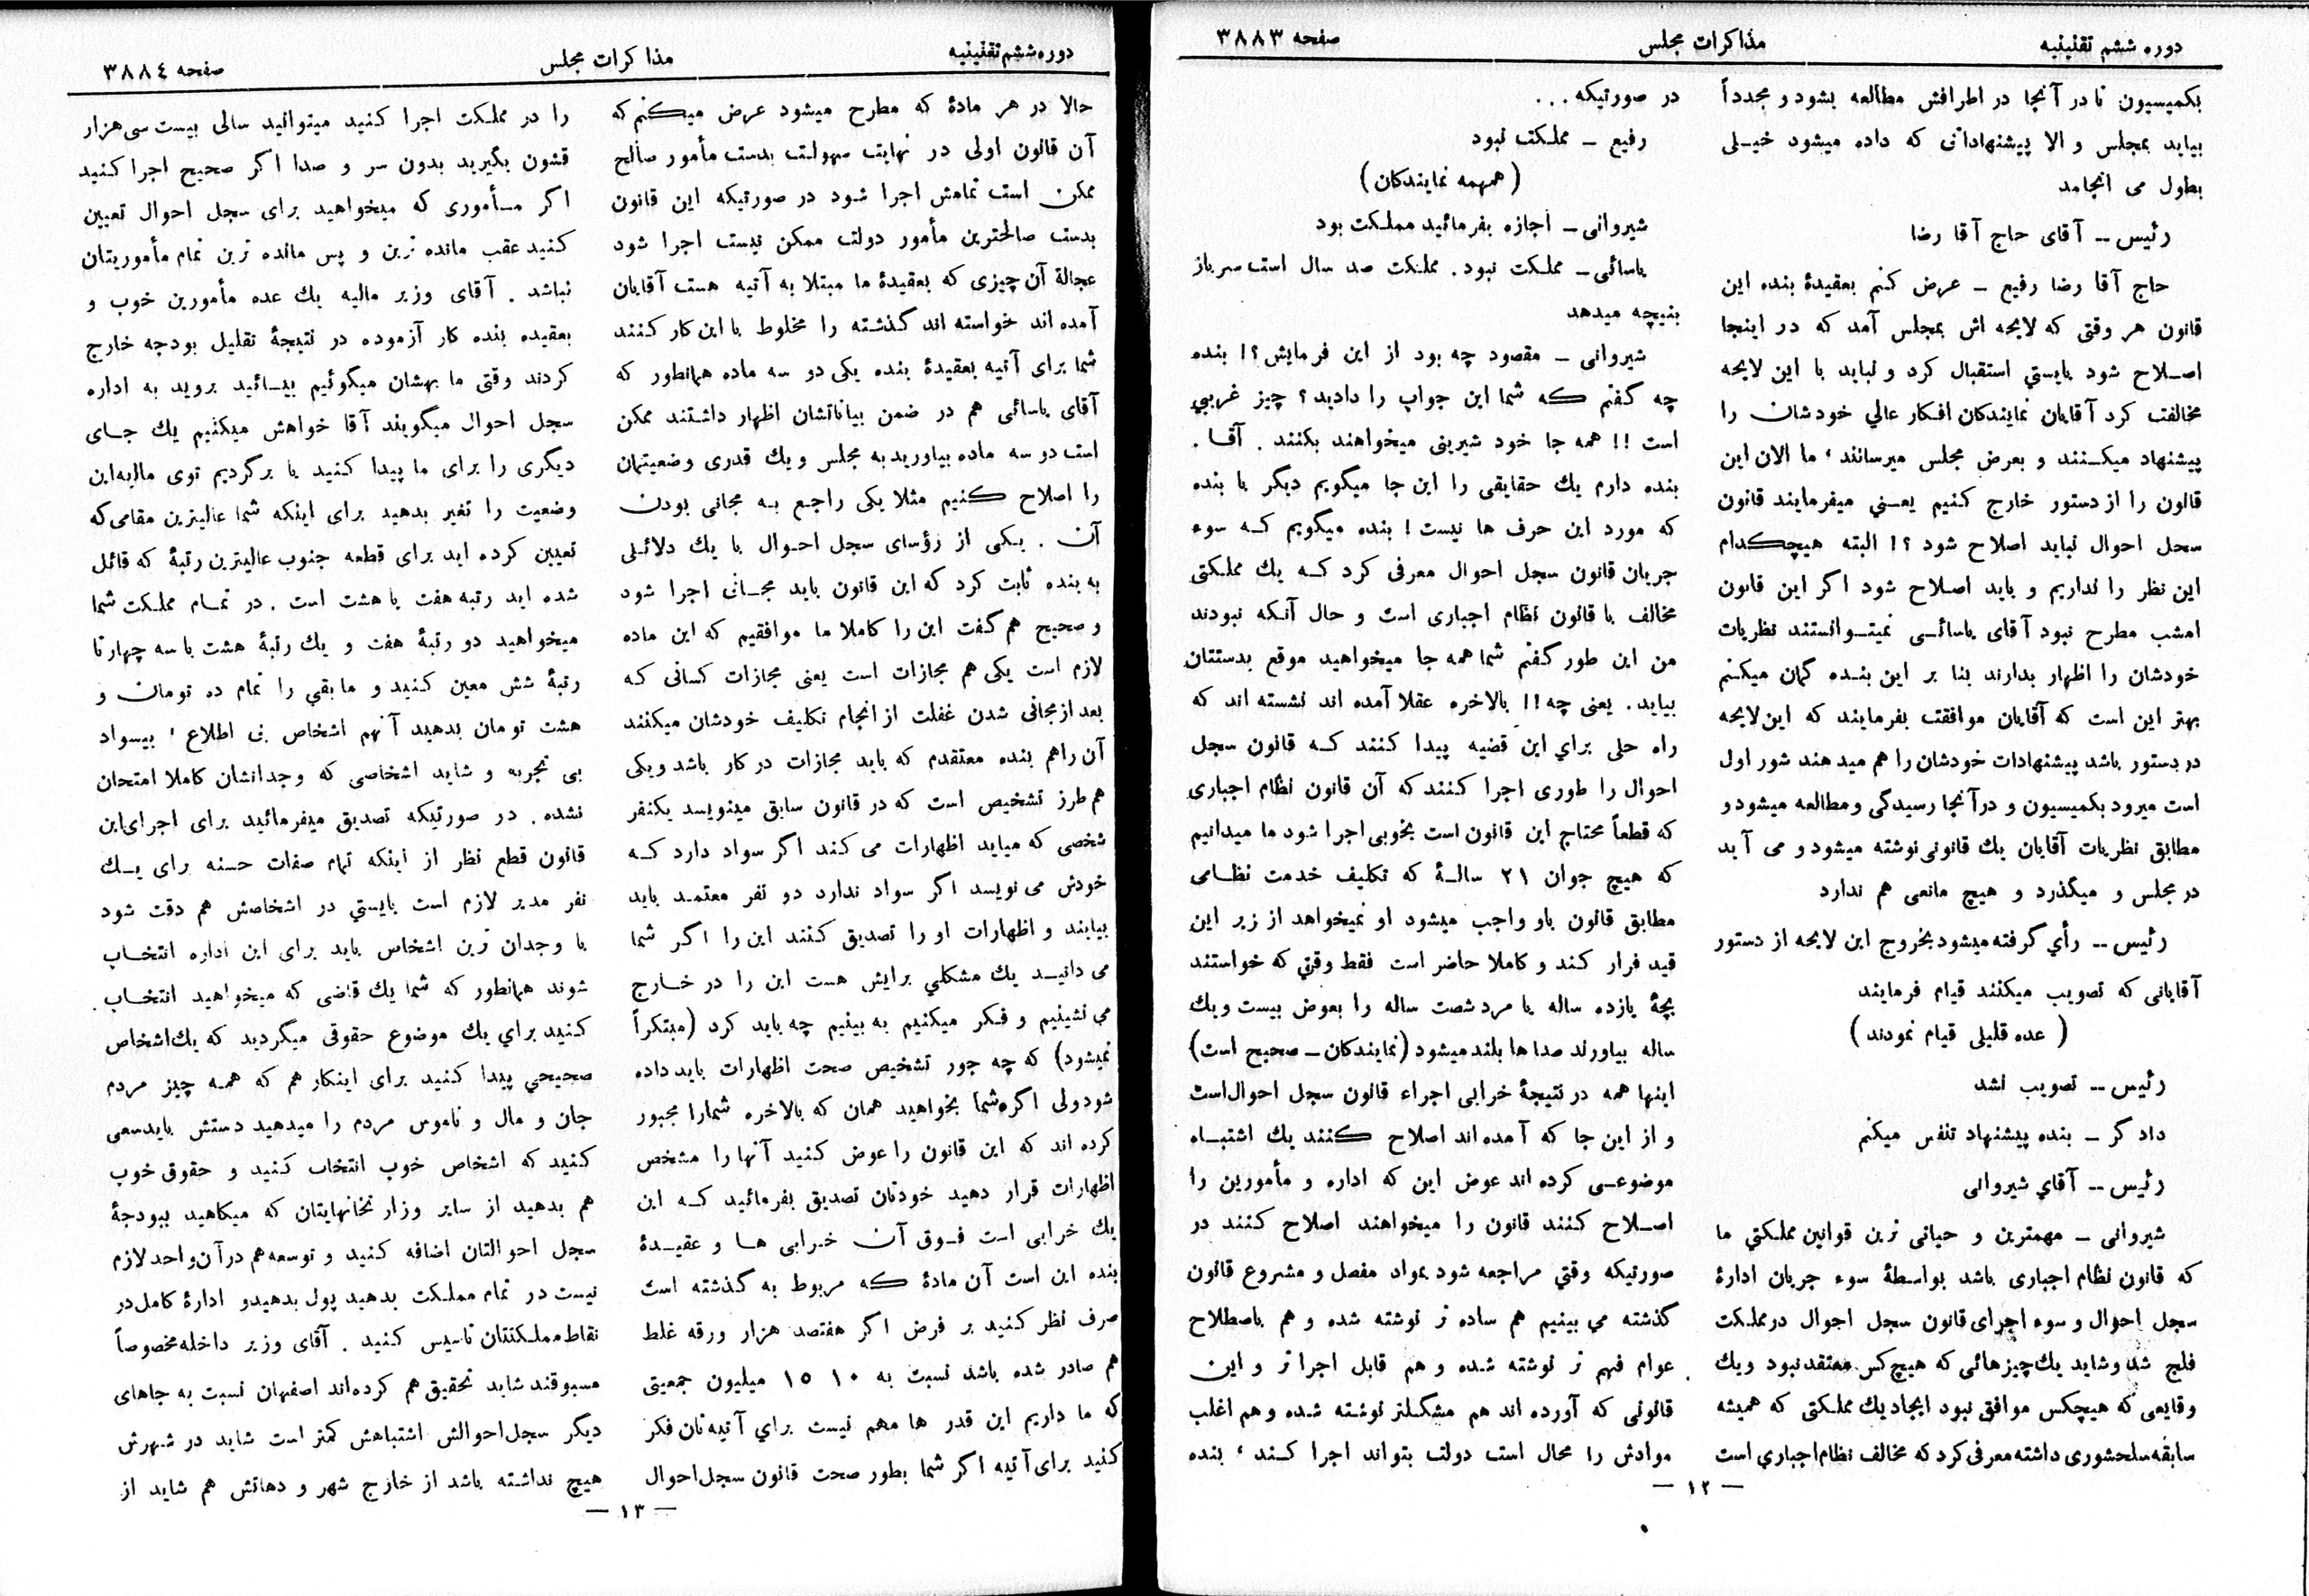 دوره ششم تقنینیه
مذاکرات مجلس
صفحه ۳۸۸۳
بکمیسیون تا در آنجا در اطرافش مطالعه بشود و مجدداً
بیاید بمجلس و الا پیشنهاداتی که داده میشود خیـلی
بطول می انجامد
رئیس -- آقای حاج آقا رضا
حاج آقا رضا رفیع ـ عرض کنم بعقیدهٔ بنده این
قانون هر وقتی که لایحه اش بمجلس آمد که در اینجا
اصـلاح شود بایستي استقبال کرد و نباید با این لایحه
مخالفت کرد آقایان نمایندکان افکار عالي خودشان را
پیشنهاد میکـنند و بعرض مجلس میرسانند ، ما الان این
قانون را از دستور خارج کنیم یعـني میفرمایند قانون
سجل احوال نباید اصلاح شود ؟! البته هیچکدام
این نظر را نداریم و باید اصـلاح شود اکر این قانون
امشب مطرح نبود آقای یاسائـی نمیتـوانستند نظریات
خودشان را اظهار بدارند بنا بر این بنـده کمان میکنم
بهتر این است که آقایان موافقت بفرمایند که این لایحه
در دستور باشد پیشنهادات خودشان را هم مید هند شور اول
است میرود بکمیسیون و درآنجا رسیدگی و مطالعه میشود و
مطابق نظریات آقایان یك قانونی نوشته میشود و می آید
در مجلس و میگذرد و هیچ مانعی هم ندارد
رئیس -- رأي گرفته میشود بخروج این لایحه از دستور
آقایانی که تصویب میکنند قیام فرمایند
( عده قلیلی قیام نمودند )
رئیس -- تصویب نشد
دادگر ـ بنده پیشنهاد تنفس میکنم
رئیس -- آقاي شیروانی
شیروانی ـ مهمترین و حیاتی ترین قوانین مملکتي ما
که قانون نظام اجباری باشد بواسطهٔ سوء جریان ادارهٔ
سجل احوال و سوء اجرای قانون سجل احوال در مملکت
فلج شد و شاید یك چیزهائی که هیچ کس معتقد نبود و یك
وقایعی که هیچکس موافق نبود ایجاد یك مملکتی که همیشه
سابقه سلحشوری داشته معرفی کرد که مخالف نظام اجباري است
در صورتیکه . . .
رفیع ـ مملکت نبود
( همهمه نمایندکان )
شیروانی ـ اجازه بفرمائید مملکت بود
یاسائی ـ مملکت نبود . مملکت صد سال است سرباز
بنیچه میدهد
شیروانی ـ مقصود چه بود از این فرمایش ؟! بنده
چه گفتم که شما این جواب را دادید ؟ چیز غریبي
است !! همه جا خود شیرینی میخواهند بکنند . آقـا .
بنده دارم یك حقایقی را این جا میگویم دیگر با بنده
که مورد این حرف ها نیست ! بنده میگویم کـه سوء
جریان قانون سجل احوال معرفی کرد کـه یك مملکتی
مخالف با قانون نظام اجباری است و حال آنکه نبودند
من این طور گفتم شما همه جا میخواهید موقع بدستتان
بیاید . یعنی چه !! بالاخره عقلا آمده اند نشسته اند که
راه حلی براي این قضیه پیدا کنند کـه قانون سجل
احوال را طوری اجرا کنند که آن قانون نظام اجباری
که قطعاً محتاج این قانون است بخوبی اجرا شود ما میدانیم
که هیچ جوان ۲۱ سالـهٔ که تکلیف خدمت نظـامی
مطابق قانون باو واجب میشود او نمیخواهد از زیر این
قید فرار کند و کاملا حاضر است فقط وقتي که خواستند
بچهٔ یازده ساله یا مرد شصت ساله را بعوض بیست و یك
ساله بیاورند صدا ها بلند میشود (نمایندکان ـ صحیح است)
اینها همه در نتیجهٔ خرابی اجراء قانون سجل احوال است
و از این جا که آمده اند اصلاح کنند یك اشتبـاه
موضوعـی کرده اند عوض این که اداره و مأمورین را
اصـلاح کنند قانون را میخواهند اصلاح کنند در
صورتیکه وقتي مراجعه شود بمواد مفصل و مشروع قانون
گذشته می بینیم هم ساده تر نوشته شده و هم باصطلاح
عوام فهم تر نوشته شده و هم قابل اجرا تر و این
قانونی که آورده اند هم مشگلتر نوشته شده و هم اغلب
موادش را محال است دولت بتواند اجرا کـند ، بنده
— ۱۲ —
دوره ششم تقنینیه
مذاکرات مجلس
صفحه ۳۸۸٤
حالا در هر مادهٔ که مطرح میشود عرض میکنم که
آن قانون اولی در نهایت سهولت بدست مأمور صالح
ممکن است تمامش اجرا شود در صورتیکه این قانون
بدست صالحترین مأمور دولت ممکن نیست اجرا شود
عجالة آن چیزی که بعقیدهٔ ما مبتلا به آتیه هست آقایان
آمده اند خواسته اند گذشته را مخلوط با این کار کنند
شما برای آتیه بعقیدهٔ بنده یکی دو سه ماده همانطور که
آقای یاسائی هم در ضمن بیاناتشان اظهار داشتند ممکن
است دو سه ماده بیاورید به مجلس و یك قدری وضعیتمان
را اصلاح کنیم مثلا یکی راجع بـه مجانی بودن
آن . یـکی از رؤسای سجل احـوال با یك دلائـلی
به بنده ثابت کرد که این قانون باید مجـانی اجرا شود
و صحیح هم گفت این را کاملا ما موافقیم که این ماده
لازم است یکی هم مجازات است یعنی مجازات کسانی کـه
بعد از مجانی شدن غفلت از انجام تکلیف خودشان میکنند
آن راهم بنده معتقدم که باید مجازات در کار باشد و یکی
هم طرز تشخیص است که در قانون سابق مینویسد یکنفر
شخصی که میاید اظهارات می کند اکر سواد دارد کـه
خودش می نویسد اکر سواد ندارد دو نفر معتمـد باید
بیایند و اظهارات او را تصدیق کنند این را اکر شما
می دانیـد یك مشکلي برایش هست این را در خـارج
مي نشینیم و فـکر میکنیم به بینیم چه باید کرد (مبتکراً
نمیشود) که چه جور تشخیص صحت اظهارات باید داده
شود ولی اکر شما بخواهید همان که بالاخره شمارا مجبور
کرده اند که این قانون را عوض کنید آنها را مشخص
اظهارات قرار دهید خودتان تصدیق بفرمائید کـه این
یك خرابی است فـوق آن خـرابی هـا و عقیـدهٔ
بنده این است آن مادهٔ که مربوط به گذشته است
صرف نظر کنید بر فرض اکر هفتصد هزار ورقه غلط
هم صادر شده باشد نسبت به ۱۰ ۱۵ میلیون جمعیتی
که ما داریم این قدر ها مهم نیست براي آتیه تان فکر
کنید برای آتیه اکر شما بطور صحت قانون سجل احوال
را در مملکت اجرا کنید میتوانید سالی بیست سی هزار
قشون بگیرید بدون سر و صدا اکر صحیح اجرا کنید
اکر مـأموری که میخواهید برای سجل احوال تعیین
کنید عقب مانده ترین و پس مانده ترین تمام مأموریتان
نباشد . آقای وزیر مالیه یك عده مأمورین خوب و
بعقیده بنده کار آزموده در نتیجهٔ تقلیل بودجه خارج
کردند وقتی ما بهشان میگوئیم بیـائید بروید به اداره
سجل احوال میگویند آقا خواهش میکنیم یك جـای
دیگری را برای ما پیدا کنید یا برگردیم توی مالیه این
وضعیت را تغیر بدهید برای اینکه شما عالیترین مقامی که
تعیین کرده اید برای قطعه جنوب عالیترین رتبهٔ که قائل
شده اید رتبه هفت یا هشت است . در تمـام مملکت شما
میخواهید دو رتبهٔ هفت و یك رتبهٔ هشت با سه چهارتا
رتبهٔ شش معین کنید و مابقي را تمام ده تومان و
هشت تومان بدهید آنهم اشخاص بی اطلاع ، بیسواد
بی تجربه و شاید اشخاصی که وجدانشان کاملا امتحان
نشده . در صورتیکه تصدیق میفرمائید برای اجرای این
قانون قطع نظر از اینکه تمام صفات حسنه برای یـك
نفر مدیر لازم است بایستي در اشخاصش هم دقت شود
با وجدان ترین اشخاص باید برای این اداره انتخـاب
شوند همانطور که شما یك قاضی که میخواهید انتخـاب
کنید براي یك موضوع حقوقی میگردید که یك اشخاص
صحیحي پیدا کنید برای اینکار هم که همـه چیز مردم
جان و مال و ناموس مردم را میدهید دستش باید سعی
کنید که اشخاص خوب انتخاب کنید و حقوق خوب
هم بدهید از سایر وزارتخانهایتان که میکاهید ببودجهٔ
سجل احوالتان اضافه کنید و توسعه هم در آن واحد لازم
نیست در تمام مملکت بدهید پول بدهید و ادارهٔ کامل در
نقاط مملکتتان تاسیس کنید . آقای وزیر داخله مخصوصاً
مسبوقند شاید تحقیق هم کرده اند اصفهان نسبت به جاهای
دیگر سجل احوالش اشتباهش کمتر است شاید در شهرش
هیچ نداشته باشد از خارج شهر و دهاتش هم شاید از
— ۱۳ —